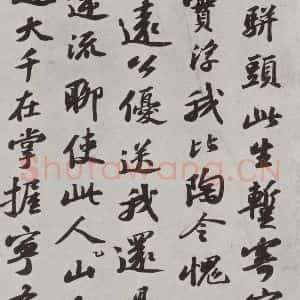 駢頭此生暫寄
實浮我比陶令愧
遠公優送我還
逆流聊使此人山
大千在掌握寧
Shufawang.CN